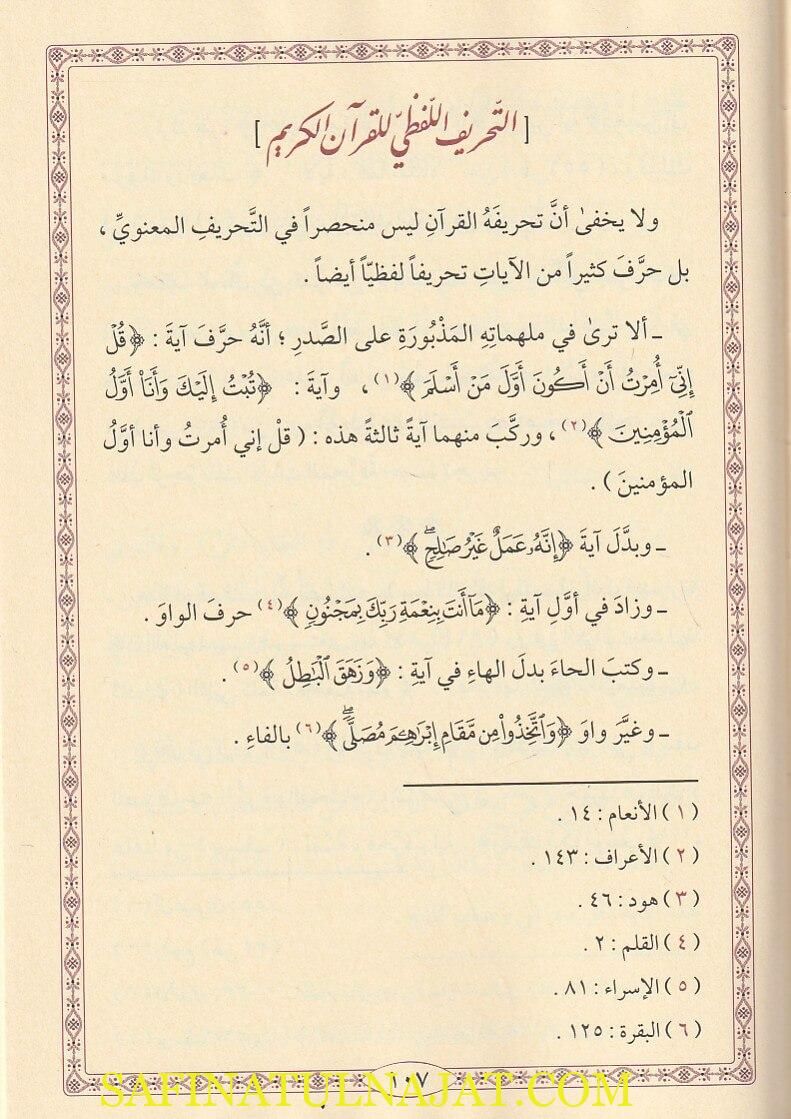 [ التَّحريف اللّفظيّ للقرآن الكريم ]
ولا يخفىٰ أنَّ تحريفَهُ القرآنِ ليس منحصراً في التَّحريفِ المعنويِّ ،
بل حرَّفَ كثيراً من الآياتِ تحريفاً لفظيّاً أيضاً .
ـ ألا ترىٰ في ملهماتِهِ المَذْبُورَةِ على الصَّدرِ ؛ أنَّهُ حرَّفَ آيةَ : ﴿قُلْ
إِنِّيٓ أُمِرْتُ أَنْ أَكُونَ أَوَّلَ مَنْ أَسْلَمَ﴾(١) ، وآيةَ : ﴿تُبْتُ إِلَيْكَ وَأَنَا۠ أَوَّلُ
ٱلْمُؤْمِنِينَ﴾(٢) ، وركَّبَ منهما آيةً ثالثةً هذه : ( قلْ إني أُمرتُ وأنا أوَّلُ
المؤمنينَ ) .
ـ وبدَّلَ آيةَ ﴿إِنَّهُۥ عَمَلٌ غَيْرُ صَٰلِحٍۖ﴾(٣) .
ـ وزادَ في أوَّلِ آيةِ : ﴿مَآ أَنتَ بِنِعْمَةِ رَبِّكَ بِمَجْنُونٍ﴾(٤) حرفَ الواوَ .
ـ وكتبَ الحاءَ بدلَ الهاءِ في آيةِ : ﴿وَزَهَقَ ٱلْبَٰطِلُ﴾(٥) .
ـ وغيَّرَ واوَ ﴿وَٱتَّخِذُوا۟ مِن مَّقَامِ إِبْرَٰهِـۧمَ مُصَلًّىۖ﴾(٦) بالفاءِ .
( ١ ) الأنعام : ١٤ .
( ٢ ) الأعراف : ١٤٣ .
( ٣ ) هود : ٤٦ .
( ٤ ) القلم : ٢ .
( ٥ ) الإسراء : ٨١ .
( ٦ ) البقرة : ١٢٥ .
١٠٧
SAFINATULNAJAT.COM